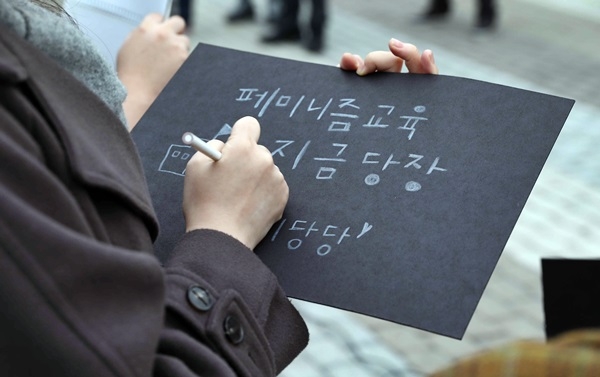 페미니즘교육
지금당장